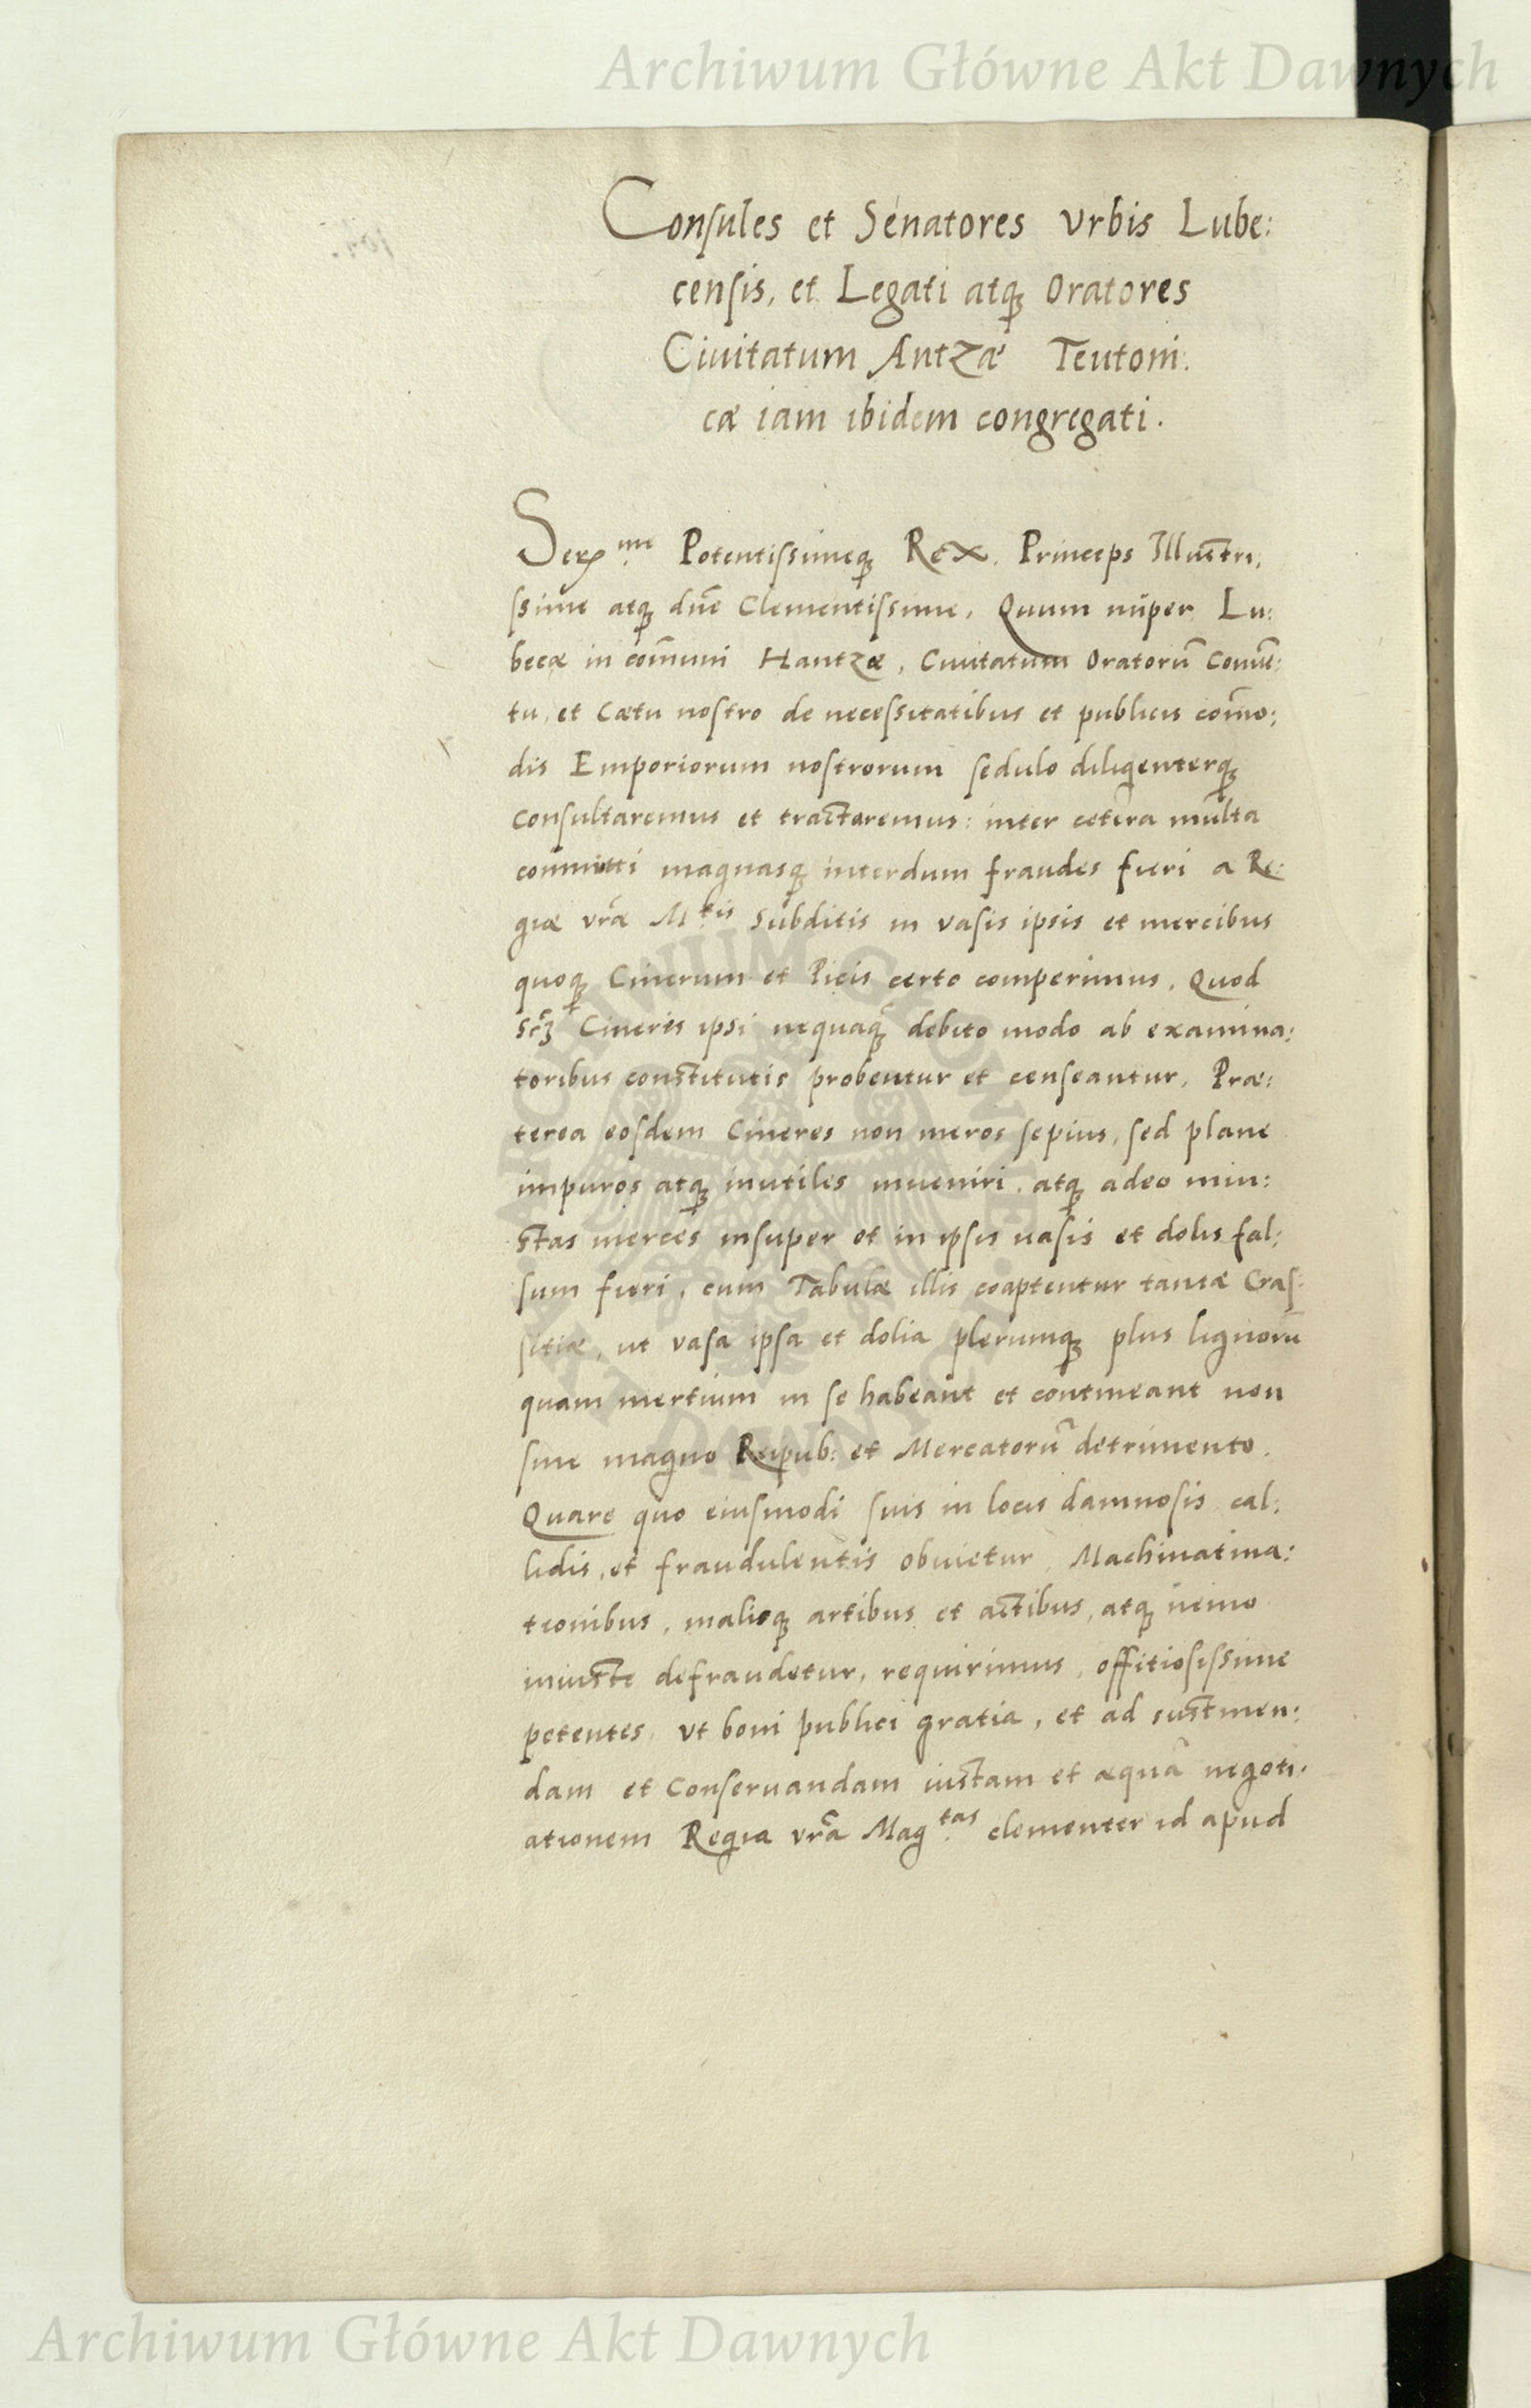 Archiwum Główne Akt Dawnych
Consules et Senatores Vrbis Lube:
censis, et Legati atq; Oratores
Ciuitatum Antzæ Teutoni:
cæ iam ibidem congregati.
Ser.me Potentissimeq; Rex. Princeps Illustri,
ssime atq; dñe Clementissime, Quum nuper Lu:
becæ in com̃uni Hantzæ, Ciuitatum Oratorũ Conuẽ:
tu, et Cætu nostro de necessitatibus et publicis com̃o:
dis Emporiorum nostrorum sedulo diligenterq;
consultaremus et tractaremus: inter cetera multa
committi magnasq; interdum fraudes fieri a Re:
giæ vr̃æ M.tis Subditis in vasis ipsis et mercibus
quoq; Cinerum et Picis certo comperimus, Quod
scz̃ Cineres ipsi nequaq̃ debito modo ab examina:
toribus constitutis probentur et censeantur, Præ:
terea eosdem Cineres non meros sepius, sed plane
impuros atq; inutiles inueniri, atq; adeo iniu:
stas merces insuper et in ipsis uasis et dolis fal:
sum fieri, cum Tabulæ illis coaptentur tantæ Cras:
sitiæ, ut vasa ipsa et dolia plerumq; plus lignorũ
quam mertium in se habeant et contineant non
sine magno Reipub: et Mercatorũ detrimento.
Quare quo eiusmodi suis in locis damnosis cal:
lidis, et fraudulentis obuietur Machinatina:
tionibus, malisq; artibus et actibus, atq; nemo
iniuste defraudetur, requirimus, offitiosissime
petentes, vt boni publici gratia, et ad sustinen:
dam et Conseruandam iustam et æquã negoti.
ationem Regia vr̃a Mag.tas clementer id apud
ARCHIWUM GŁÓWNE AKT DAWNYCH
Archiwum Główne Akt Dawnych